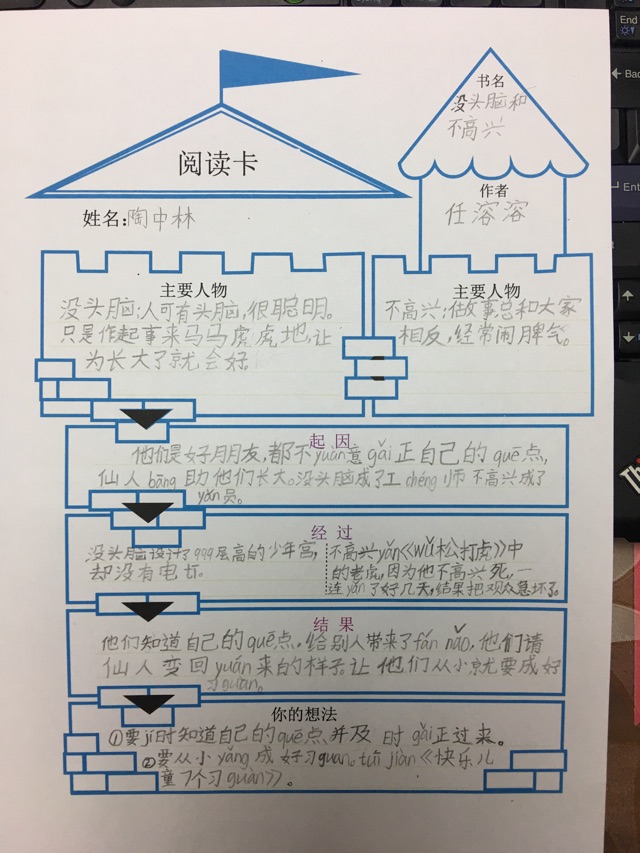 阅读卡
姓名:陶中林
书名
没头脑和
不高兴
作者
任溶溶
主要人物
没头脑:人可有头脑,很聪明。
只是作起事来马马虎虎地,让
为长大了就会好
主要人物
不高兴:做故事总和大家
相反,经常闹脾气。
起因
他们是好朋友,都不yuàn意gǎi正自己的quē点,
仙人bāng助他们长大。没头脑成了工chéng师 不高兴成了
yǎn员。
经过
没头脑设计了999层高的少年宫,
却没有电
不高兴yǎn《wǔ松打虎》中
的老虎,因为他不高兴死,一
连yǎn了好几天,结果把观众急坏了。
结果
他们知道自己的quē点,给别人带来了fán nǎo,他们请
仙人变回yuán来的样子。让他们从小就要成好
习guàn。
你的想法
①要jí时知道自己的quē点、并及时gǎi正过来。
②要从小yǎng成好习guan。tuī jiàn《快乐儿
童7个习guàn》。
End
Enter